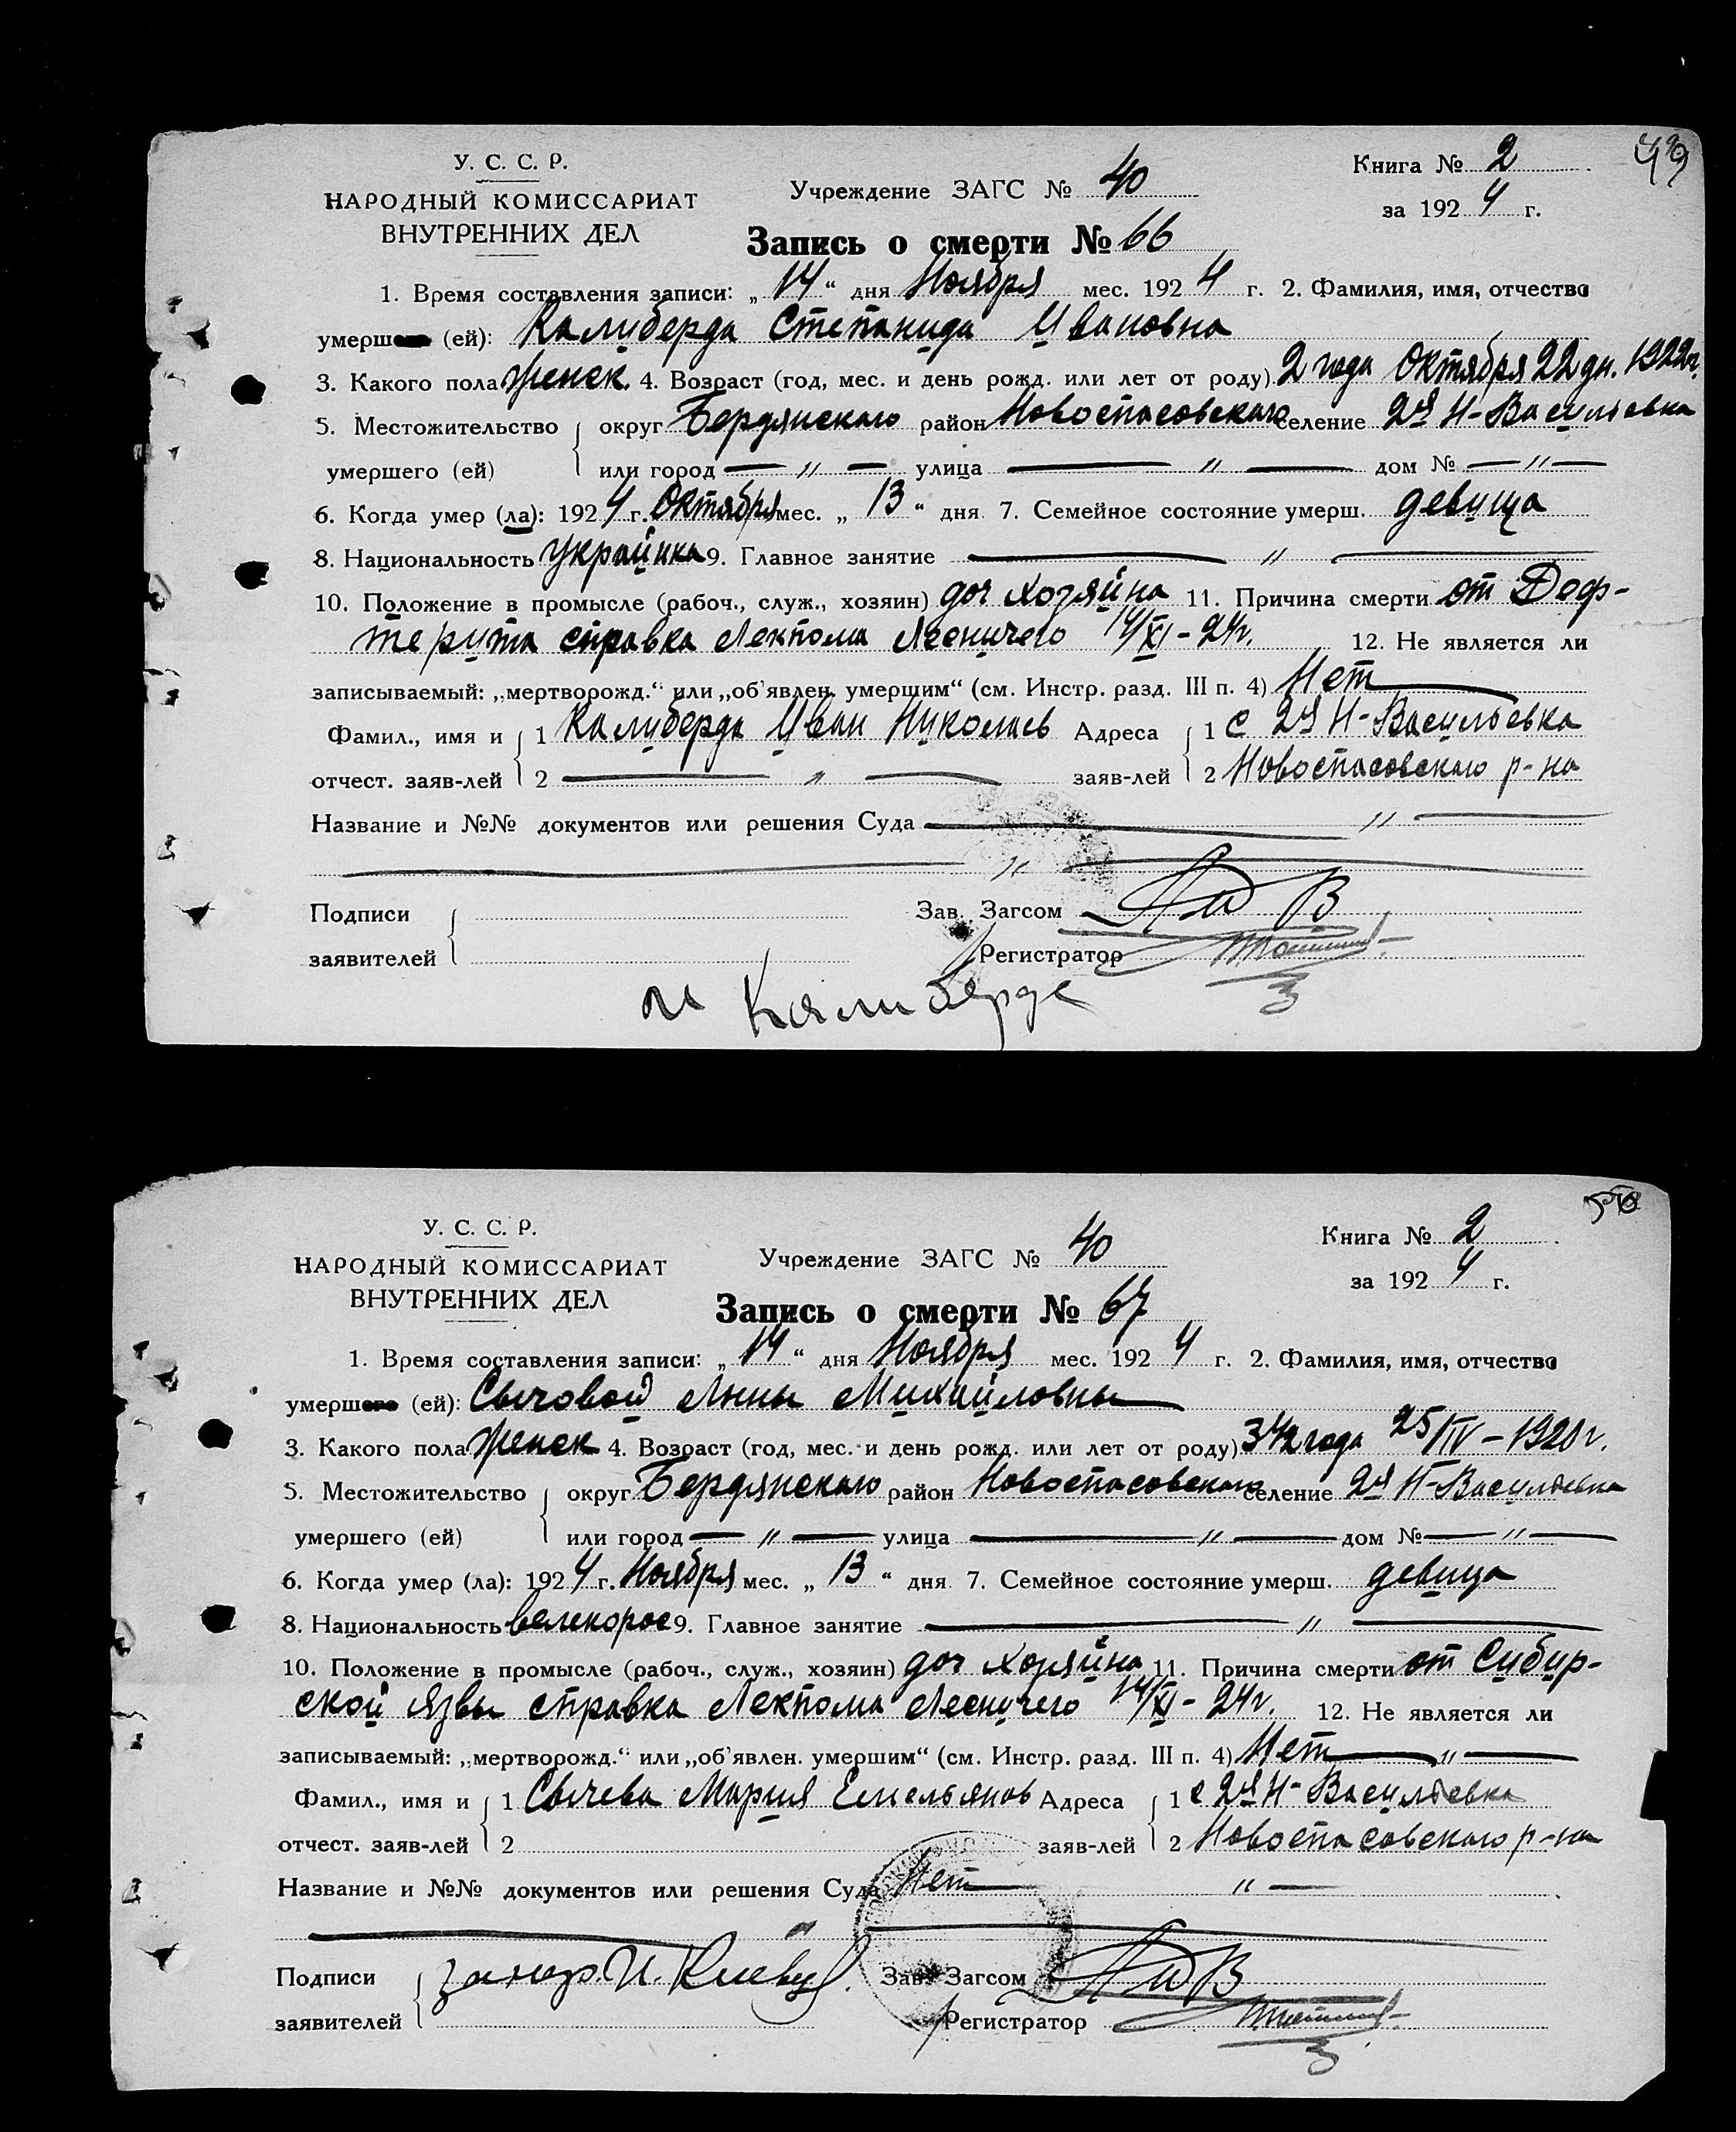 49
У. С. С. Р.
НАРОДНЫЙ КОМИССАРИАТ
ВНУТРЕННИХ ДЕЛ
Учреждение ЗАГС № 40
Книга № 2
за 1924 г.
Запись о смерти № 66
1. Время составления записи: „14“ дня Ноября мес. 1924 г. 2. Фамилия, имя, отчество
умершего (ей): Калиберда Степанида Ивановна
3. Какого пола женск. 4. Возраст (год, мес. и день рожд. или лет от роду) 2 года Октября 22 дн. 1922 г.
5. Местожительство округ Бердянского район Новоспасовского селение 2я Н-Васильевка
умершего (ей) или город — „ — улица — „ — дом № — „ —
6. Когда умер (ла): 1924 г. Октября мес. „13“ дня 7. Семейное состояние умерш. девица
8. Национальность украинка 9. Главное занятие — „ —
10. Положение в промысле (рабоч., служ., хозяин) доч хозяйна 11. Причина смерти от Деф-
терита справка Лекпома Лесничего 14/XI-24г. 12. Не является ли
записываемый: „мертворожд.“ или „об'явлен. умершим“ (см. Инстр. разд. III п. 4) Нет
Фамил., имя и 1 Калиберда Иван Николаев Адреса 1 с 2я Н-Васильевка
отчест. заяв-лей 2 — „ — заяв-лей 2 Новоспасовского р-на
Название и №№ документов или решения Суда — „ —
— „ —
Подписи Зав. Загсом
заявителей Регистратор
и Калиберда
50
У. С. С. Р.
НАРОДНЫЙ КОМИССАРИАТ
ВНУТРЕННИХ ДЕЛ
Учреждение ЗАГС № 40
Книга № 2
за 1924 г.
Запись о смерти № 67
1. Время составления записи: „14“ дня Ноября мес. 1924 г. 2. Фамилия, имя, отчество
умершего (ей): Сычовой Анны Михайловны
3. Какого пола женск 4. Возраст (год, мес. и день рожд. или лет от роду) 3 1/2 года 25/IV-1920 г.
5. Местожительство округ Бердянского район Новоспасовского селение 2я Н-Васильевка
умершего (ей) или город — „ — улица — „ — дом № — „ —
6. Когда умер (ла): 1924 г. Ноября мес. „13“ дня 7. Семейное состояние умерш. девица
8. Национальность великорос 9. Главное занятие — „ —
10. Положение в промысле (рабоч., служ., хозяин) доч хозяйна 11. Причина смерти от Сибир-
ской язвы справка Лекпома Лесничего 14/XI-24г. 12. Не является ли
записываемый: „мертворожд.“ или „об'явлен. умершим“ (см. Инстр. разд. III п. 4) Нет — „ —
Фамил., имя и 1 Сычева Мария Емельянов Адреса 1 с 2я Н-Васильевка
отчест. заяв-лей 2 заяв-лей 2 Новоспасовского р-на
Название и №№ документов или решения Суда Нет — „ —
— „ —
Подписи Зав. Загсом
заявителей Регистратор